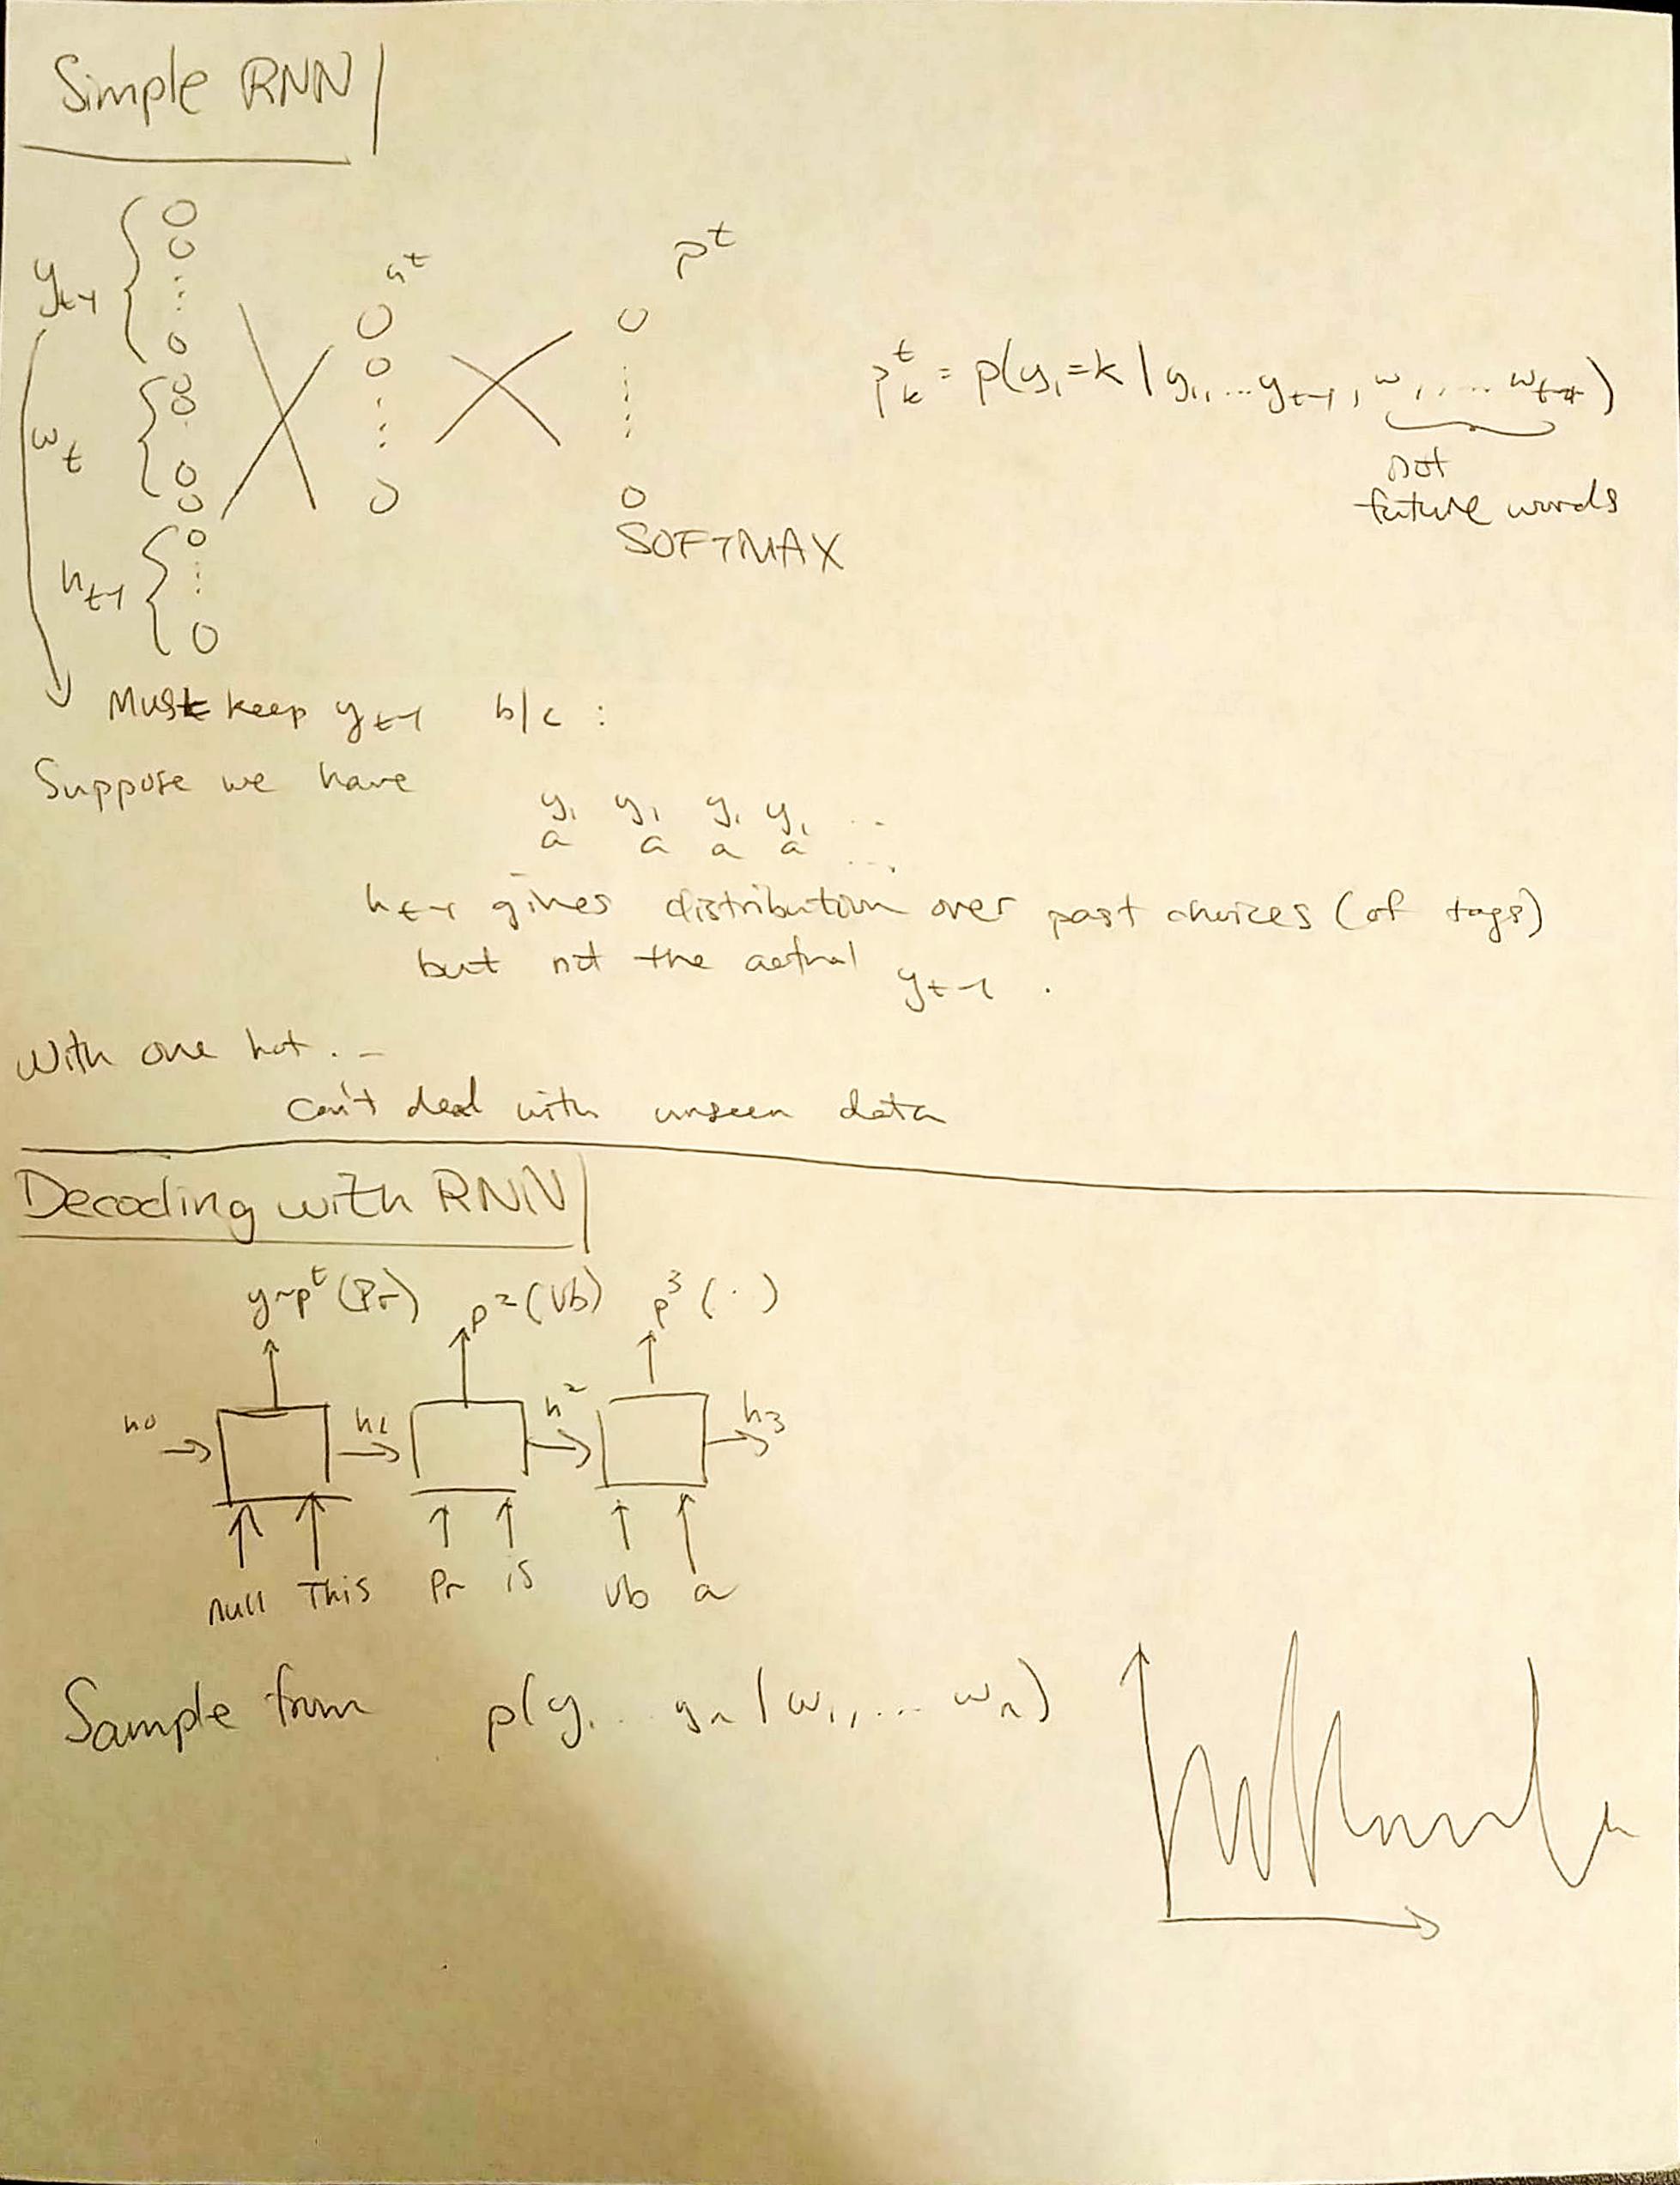 Simple RNN
y_{t-1}
w_t
h_{t-1}
h^t
p^t
SOFTMAX
p_k^t = p(y_1=k | y_1, ... y_{t-1}, w_1, ... w_t)
not
future words
Must keep y_{t-1} b/c :
Suppose we have
y_1 y_1 y_1 y_1 ...
a a a a ...
h_{t-1} gives distribution over past choices (of tags)
but not the actual y_{t-1} .
With one hot . -
can't deal with unseen data
Decoding with RNN
y~p^t (Pr) p^2 (Vb) p^3 (.)
h0 h1 h^2 h3
null This Pr is Vb a
Sample from p(y_1 ... y_n | w_1, ... w_n)